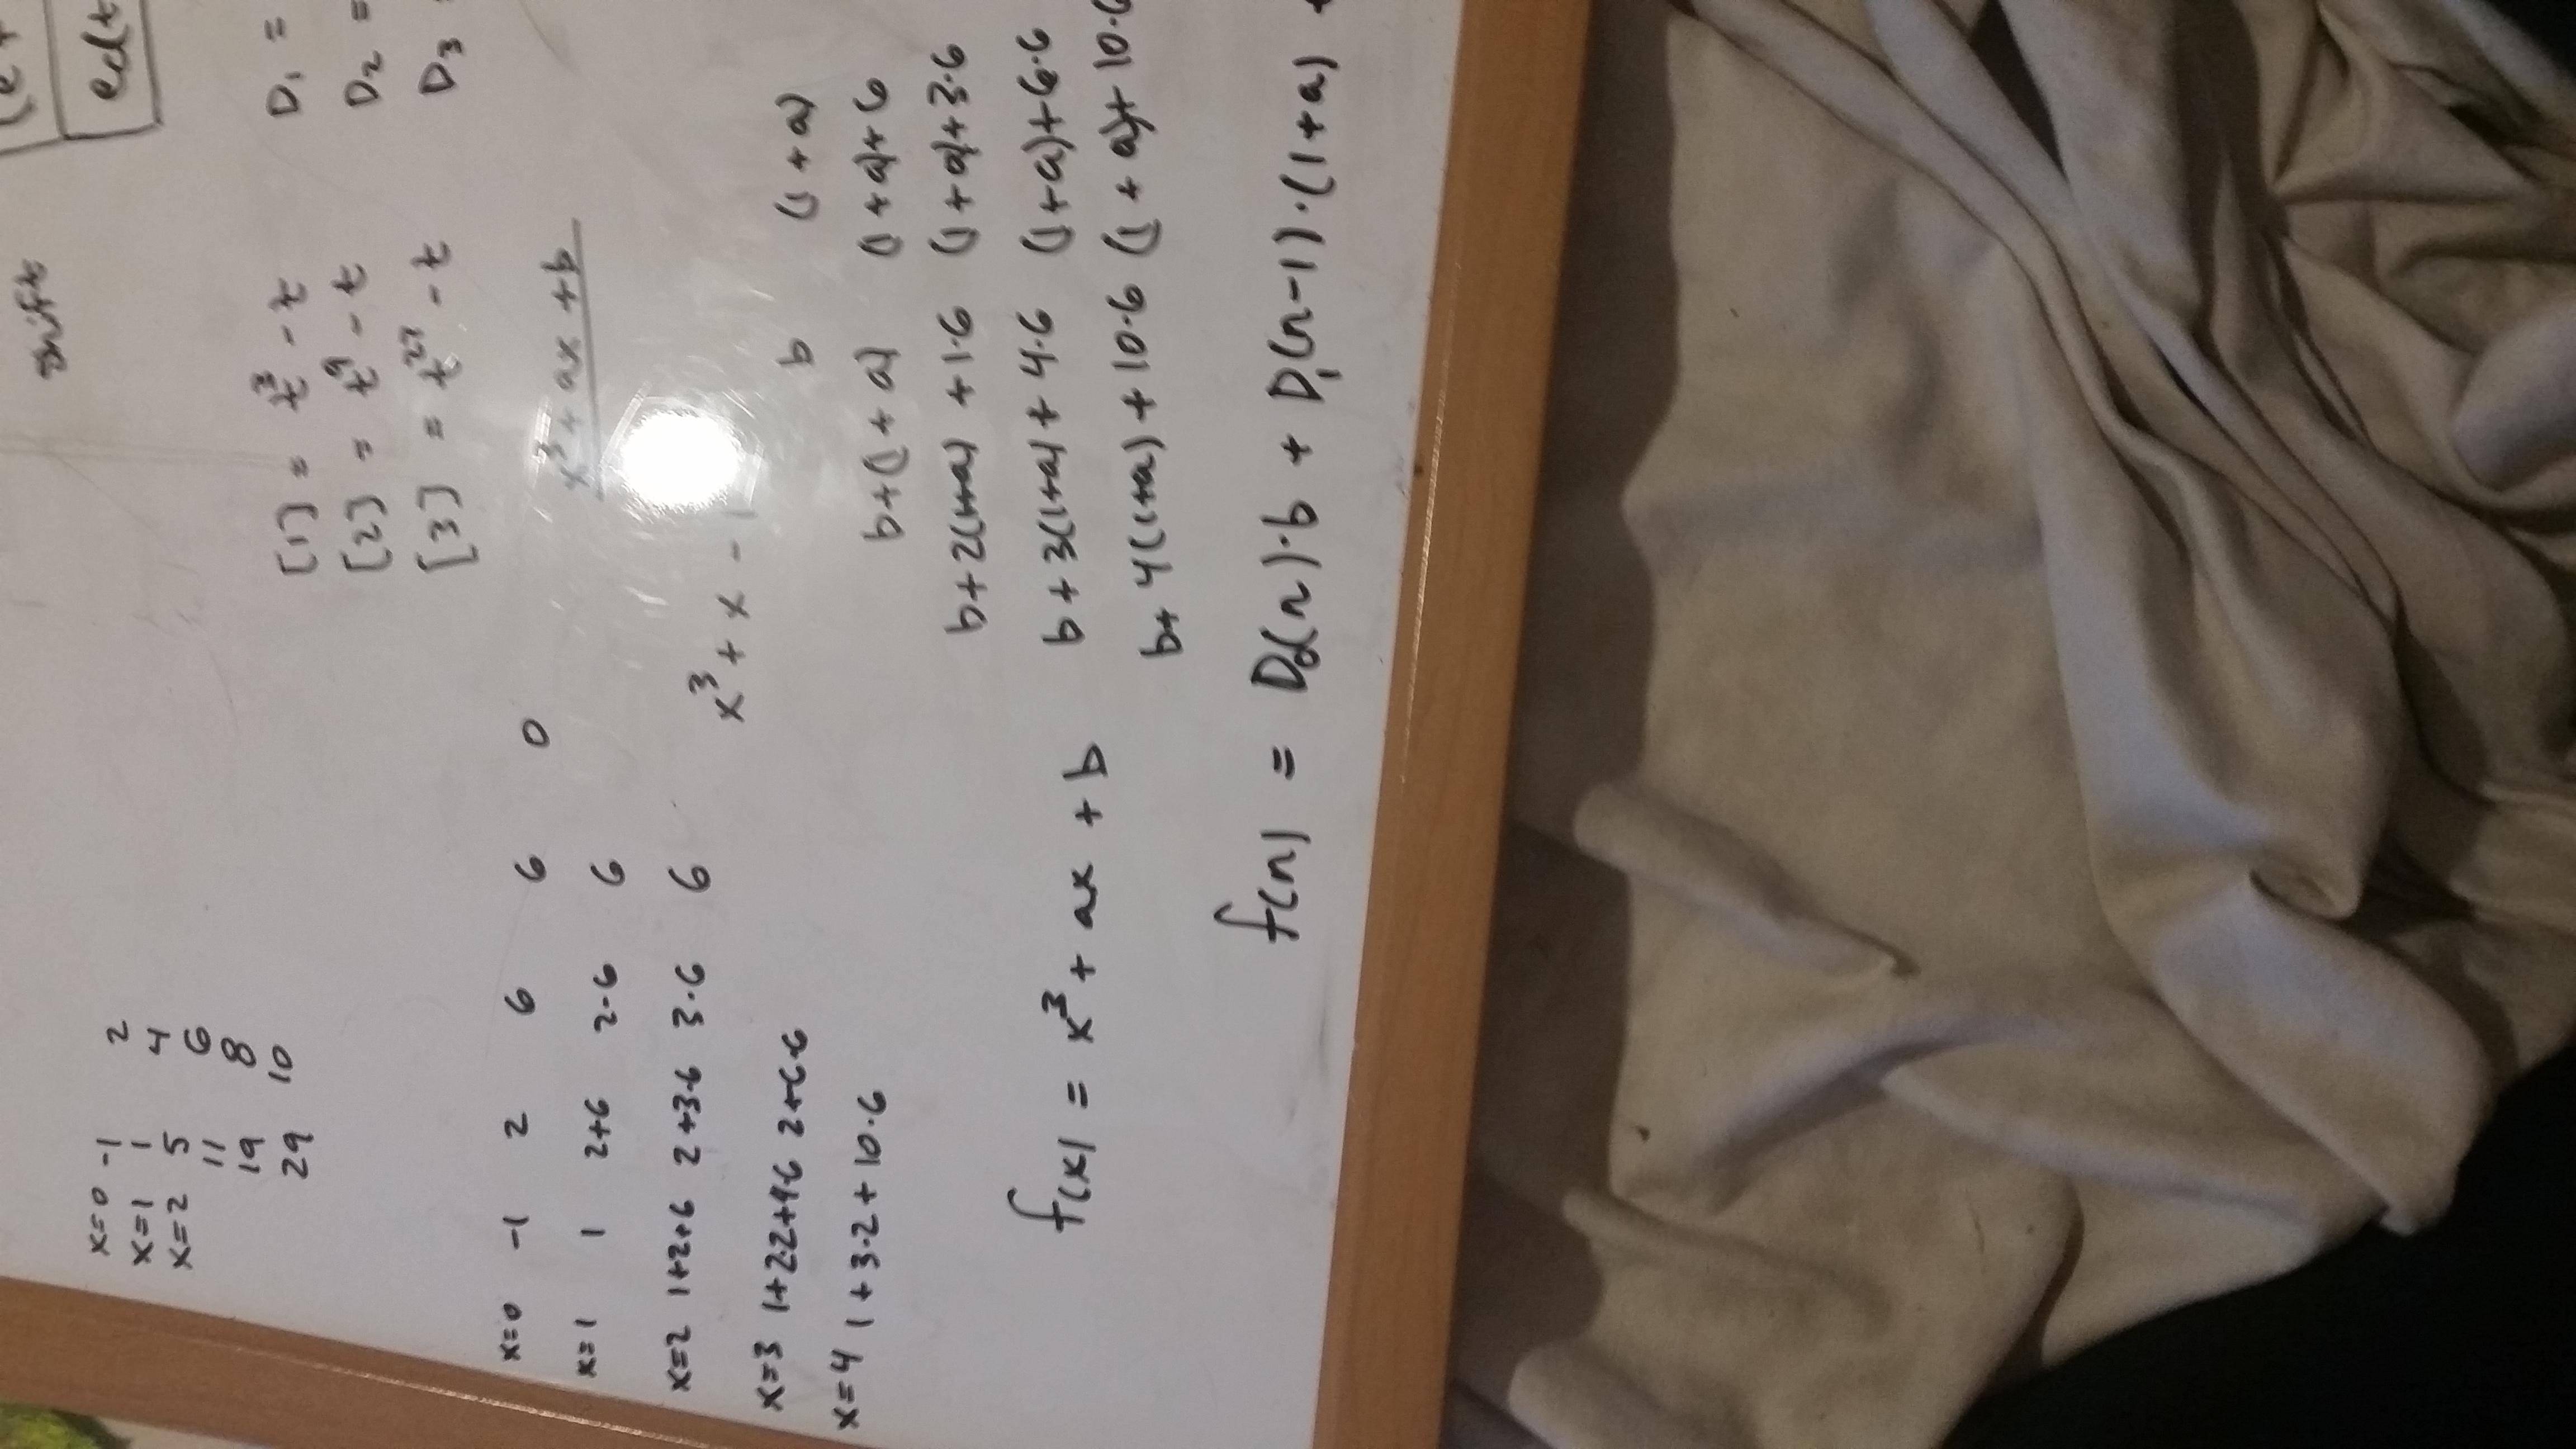 shift
edt
x=0 -1 2
x=1 1 4
x=2 5 6
11 8
19 10
29
[1] = t³ - t D₁ =
[2] = t⁹ - t D₂ =
[3] = t²⁷ - t D₃
x=0 -1 2 6 6 0
x=1 1 2+6 2·6 6
x=2 1+2+6 2+3·6 3·6 6
x=3 1+2·2+4·6 2+6·6
x=4 1+3·2+10·6
x³ + ax + b
x³ + x - 1
b (1 + a)
b+(1 + a) (1 + a)+ 6
b+2(1+a) +1·6 (1 + a)+3·6
b+3(1+a) + 4·6 (1+a)+6·6
b+ 4(1+a) + 10·6 (1 + a)+ 10·6
f(x) = x³ + ax + b
f(n) = D₀(n)·b + D₁(n-1)·(1+a) +